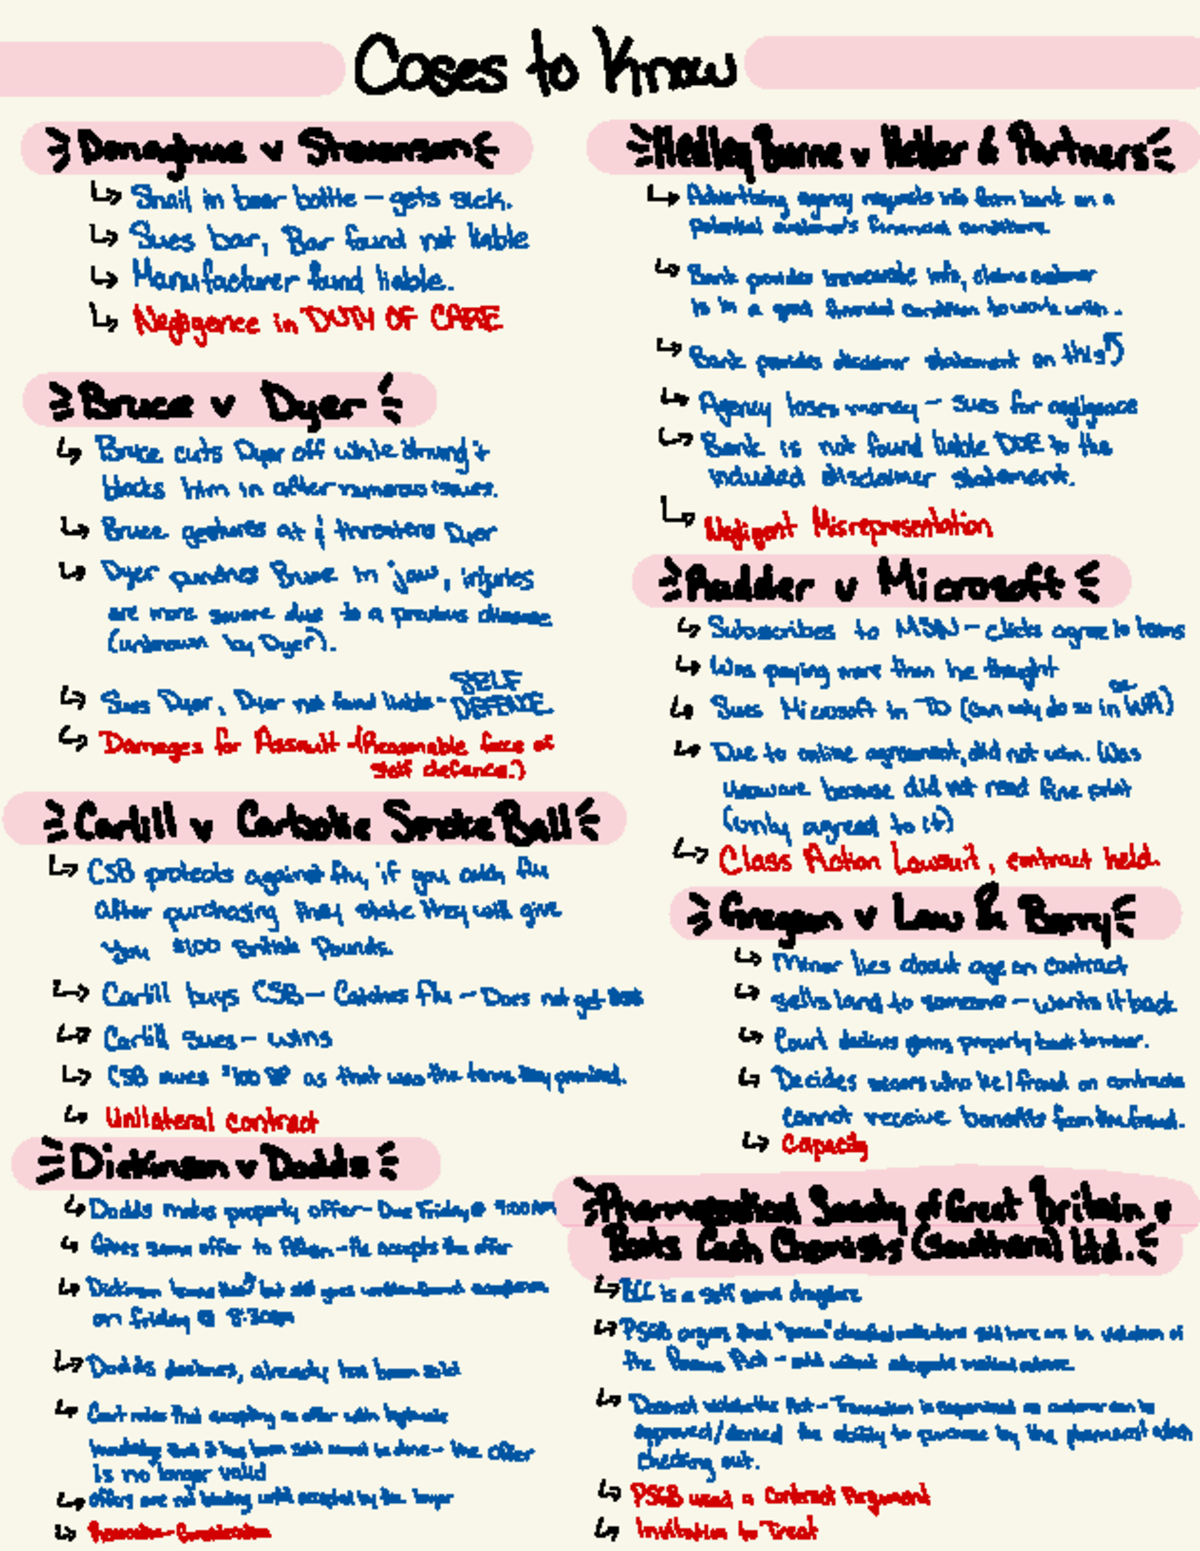 Cases to Know
Donoghue v Stevenson
↳ Snail in beer bottle – gets sick.
↳ Sues bar, Bar found not liable
↳ Manufacturer found liable.
↳ Negligence in DUTY OF CARE
Bruce v Dyer
↳ Bruce cuts Dyer off while driving &
blocks him in after numerous issues.
↳ Bruce gestures at & threatens Dyer
↳ Dyer punches Bruce in jaw, injuries
are more severe due to a previous disease
(unknown by Dyer).
↳ Sues Dyer, Dyer not found liable - SELF
DEFENCE
↳ Damages for Assault - (Reasonable force as
self defence.)
Carlill v Carbolic Smoke Ball
↳ CSB protects against flu, if you catch flu
after purchasing they state they will give
you $100 British Pounds.
↳ Carlill buys CSB – Catches flu – Does not get
↳ Carlill sues – wins
↳ CSB owes $100 BP as that was the terms they promised.
↳ Unilateral contract
Dickinson v Dodds
↳ Dodds makes property offer – Due Friday @ 9:00AM
↳ Gives same offer to Allan – He accepts the offer
↳ Dickinson but still goes acceptance
on friday @ 8:30am
↳ Dodds declines, already has been sold
↳ Court rules that accepting an offer with
knowledge that it has been sold cannot be done – the offer
is no longer valid
↳ offers are not binding until accepted by the buyer
↳
Hedley Byrne v Heller & Partners
↳ Advertising agency requests info from bank on a
potential customer's financial conditions.
↳ Bank provides inaccurate info, claims customer
is in a good financial condition to work with.
↳ Bank provides disclaimer statement on this
↳ Agency loses money – sues for negligence
↳ Bank is not found liable DUE to the
included disclaimer statement.
↳ Negligent Misrepresentation
Rudder v Microsoft
↳ Subscribes to MSN – clicks agree to terms
↳ Was paying more than he thought
↳ Sues Microsoft in TO (can only do so in WA)
↳ Due to online agreement, did not win. Was
unaware because did not read fine print
(only agreed to it)
↳ Class Action Lawsuit, contract held.
Gregson v Law & Barry
↳ Minor lies about age on contract
↳ sells land to someone – wants it back
↳ Court declines giving property back to minor.
↳ Decides minors who lie/fraud on contracts
cannot receive benefits from the fraud.
↳ Capacity
Pharmaceutical Society of Great Britain v
Boots Cash Chemists (Southern) Ltd.
↳ is a self serve drugstore
↳ PSGB argues that "poison" classified medications sold here are in violation of
the Poisons Act – sold without adequate
↳ Doesn't violate the Act – Transaction is supervised as customer can be
approved/denied the ability to purchase by the pharmacist when
checking out.
↳ PSGB used a Contract Argument
↳ Invitation to Treat